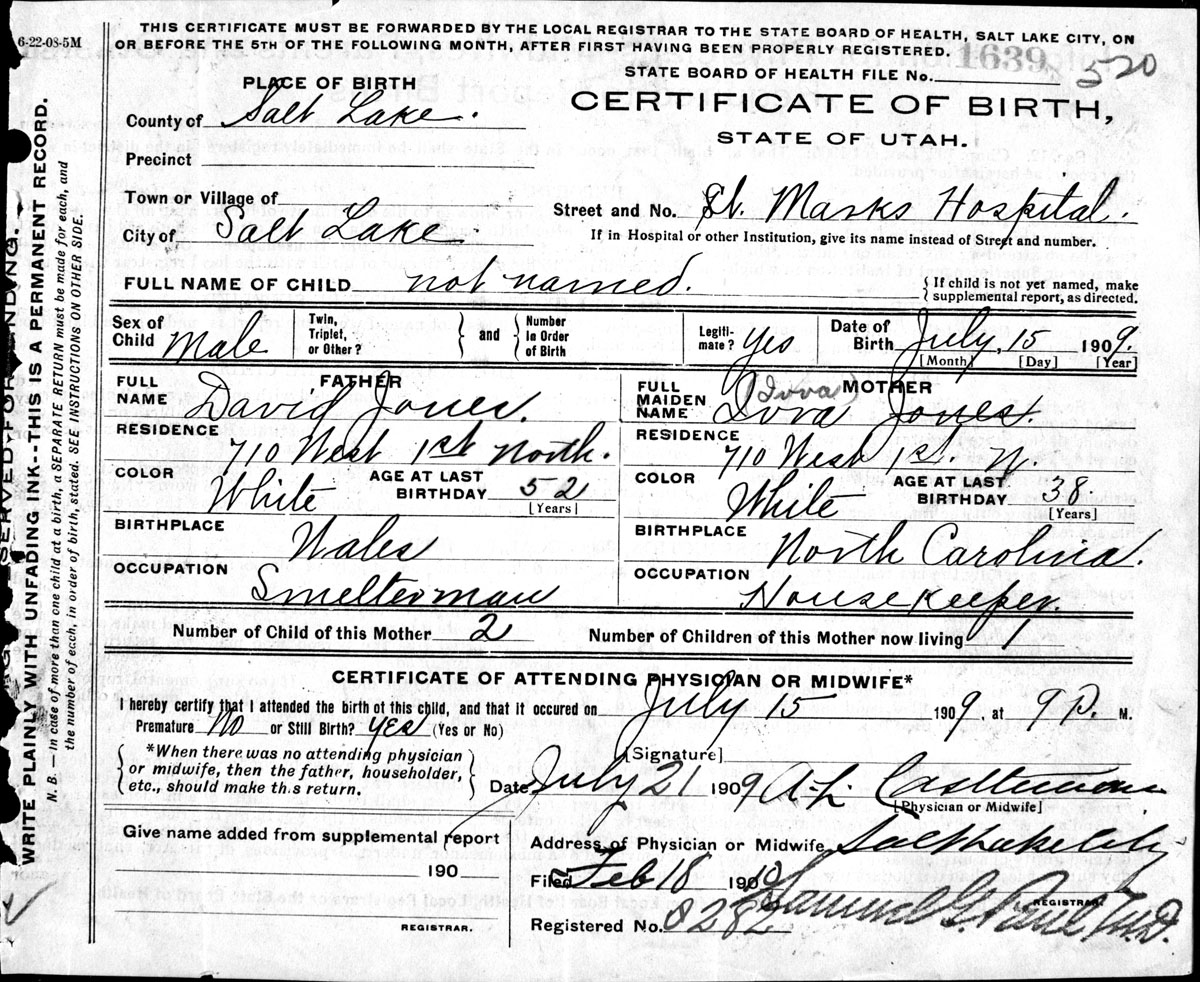 6-22-08-5M
THIS CERTIFICATE MUST BE FORWARDED BY THE LOCAL REGISTRAR TO THE STATE BOARD OF HEALTH, SALT LAKE CITY, ON
OR BEFORE THE 5TH OF THE FOLLOWING MONTH, AFTER FIRST HAVING BEEN PROPERLY REGISTERED.
1639 520
STATE BOARD OF HEALTH FILE No.
CERTIFICATE OF BIRTH,
STATE OF UTAH.
PLACE OF BIRTH
County of Salt Lake.
Precinct
Town or Village of
City of Salt Lake
Street and No. St. Marks Hospital.
If in Hospital or other Institution, give its name instead of Street and number.
FULL NAME OF CHILD not named.
{If child is not yet named, make
supplemental report, as directed.
Sex of Child Male
Twin, Triplet, or Other? } and { Number in Order of Birth
Legiti-mate? Yes
Date of Birth July, 15 1909.
[Month] [Day] [Year]
FATHER
FULL NAME David Jones.
RESIDENCE 710 West 1st North.
COLOR White AGE AT LAST BIRTHDAY 52
[Years]
BIRTHPLACE Wales
OCCUPATION Smelterman
MOTHER
(Iova)
FULL MAIDEN NAME Iova Jones.
RESIDENCE 710 West 1st. N.
COLOR White AGE AT LAST BIRTHDAY 38
[Years]
BIRTHPLACE North Carolina.
OCCUPATION Housekeeper.
Number of Child of this Mother 2 Number of Children of this Mother now living 1
CERTIFICATE OF ATTENDING PHYSICIAN OR MIDWIFE*
I hereby certify that I attended the birth of this child, and that it occured on July 15 1909, at 9 P. M.
Premature No or Still Birth? yes (Yes or No)
*When there was no attending physician
or midwife, then the father, householder,
etc., should make th.s return.
[Signature]
Date July 21 1909
[Physician or Midwife]
Give name added from supplemental report
190
REGISTRAR.
Address of Physician or Midwife Salt Lake City
Filed Feb 18 1910
REGISTRAR.
Registered No. 8282
WRITE PLAINLY WITH UNFADING INK--THIS IS A PERMANENT RECORD.
N. B. — In case of more than one child at a birth, a SEPARATE RETURN must be made for each, and
the number of each, in order of birth, stated. SEE INSTRUCTIONS ON OTHER SIDE.